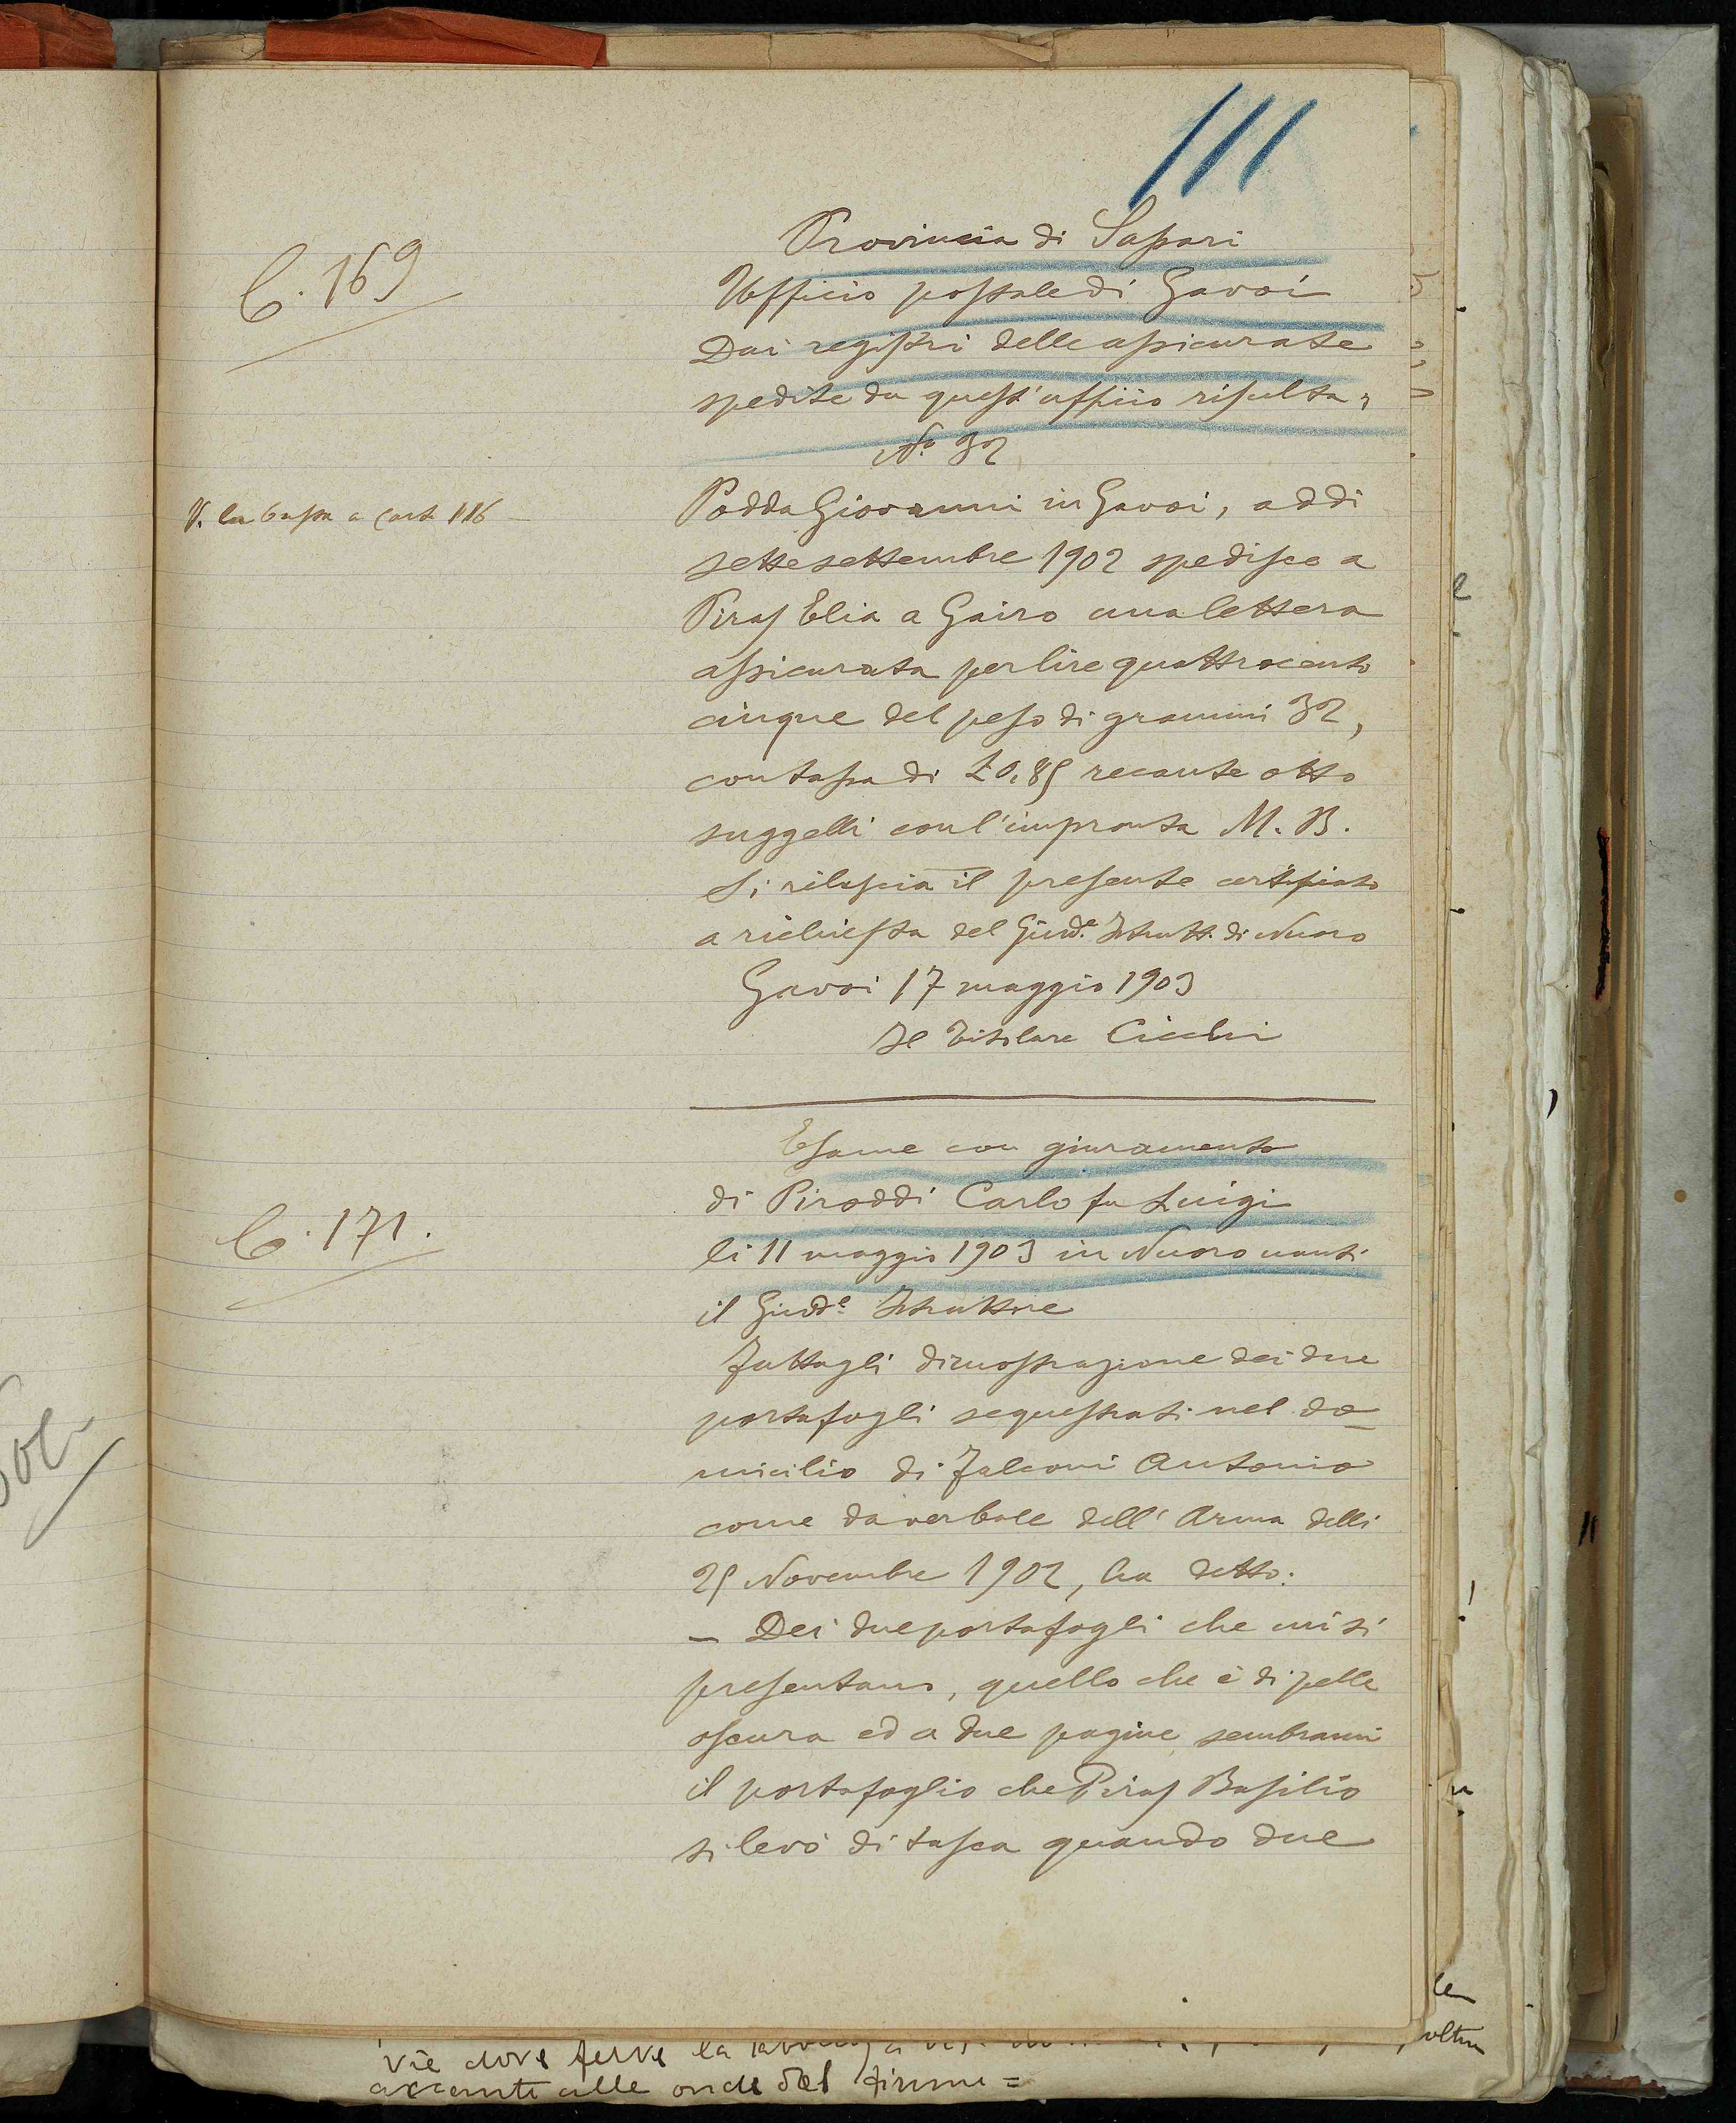 111
C. 169
Provincia di Sassari
Ufficio postale di Gavoi
Dai registri delle assicurate
spedite da quest'ufficio risulta:
N.o 32
V. la busta a cart. 116
Podda Giovanni in Gavoi, addi
sette settembre 1902 spedisce a
Piras Elia a Gairo una lettera
assicurata per lire quattrocento
cinque del peso di grammi 32,
con tassa di £0,85 recante otto
suggelli coll'impronta M. B.
Si rilascia il presente certificato
a richiesta del Giud.e Istrutt. di Nuoro
Gavoi 17 maggio 1903
Il Titolare Cicchi
C. 171.
Esame con giuramento
di Piroddi Carlo fu Luigi
li 11 maggio 1903 in Nuoro nanti
il Giud.e Istruttore
Fattagli dimostrazione dei due
portafogli sequestrati nel do-
micilio di Falconi Antonio
come da verbale dell'Arma delli
25 Novembre 1902, ha detto:
- Dei due portafogli che mi si
presentano, quello che è di pelle
oscura ed a due pagine sembrami
il portafoglio che Piras Basilio
si levò di tasca quando due
vie dove serve la
accanto alle onde del fiume =